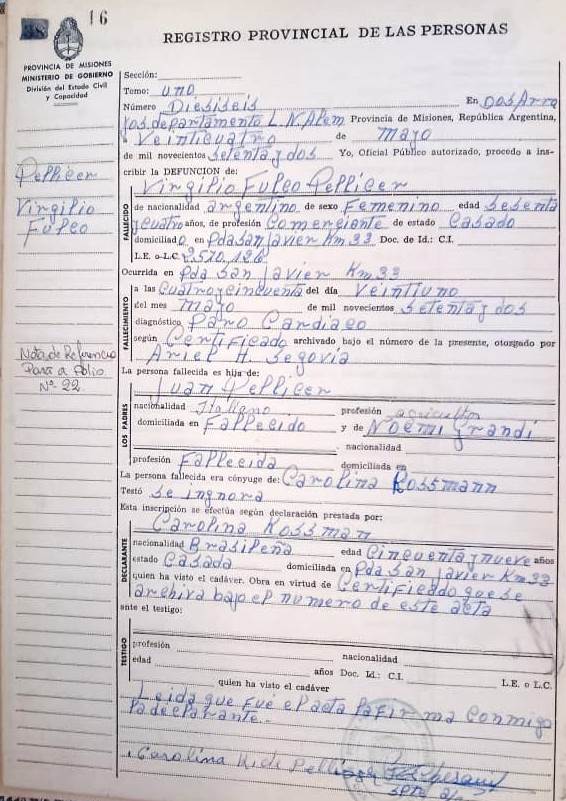 38 16
REGISTRO PROVINCIAL DE LAS PERSONAS
PROVINCIA DE MISIONES
MINISTERIO DE GOBIERNO
División del Estado Civil
y Capacidad
Pellicer
Virgilio
Fulco
Nota de Referencia
Para a folio
Nº 22
Sección:
Tomo: uno
Número Diesiseis En Dos Arro
yos departamento L. N. Alem Provincia de Misiones, República Argentina,
a Veinticuatro de mayo
de mil novecientos Setenta y dos Yo, Oficial Público autorizado, procedo a ins-
cribir la DEFUNCION de:
Virgilio Fulco Pellicer
FALLECIDO
de nacionalidad argentino de sexo Femenino edad Sesenta
y cuatro años, de profesión Comerciante de estado Casado
domiciliado en Pda San Javier Km 33 Doc. de Id.: C.I.
L.E. o L.C. 2570.126
Ocurrida en Pda San Javier Km 33
FALLECIMIENTO
a las Cuatro y cincuenta del día Veintiuno
del mes mayo de mil novecientos Setenta y dos
diagnóstico Paro Cardiaco
según Certificado archivado bajo el número de la presente, otorgado por
Ariel H. Segovia
La persona fallecida es hija de:
LOS PADRES
Juan Pellicer
nacionalidad Italiano profesión agricultor
domiciliada en Fallecido y de Noemi Grandi
nacionalidad
profesión Fallecida domiciliada en
La persona fallecida era cónyuge de: Carolina Rossmann
Testó Se ingnora
Esta inscripción se efectúa según declaración prestada por:
Carolina Rossman
DECLARANTE
nacionalidad Brasileña edad Cincuenta y nueve años
estado Casada domiciliada en Pda San Javier Km 33
quien ha visto el cadáver. Obra en virtud de Certificado que se
archiva bajo el numero de este acta
ante el testigo:
TESTIGO
profesión nacionalidad
edad años Doc. Id.: C.I. L.E. o L.C.
quien ha visto el cadáver
Leida que fué el acta la firma conmigo
la declarante.
Carolina R. de Pellicer